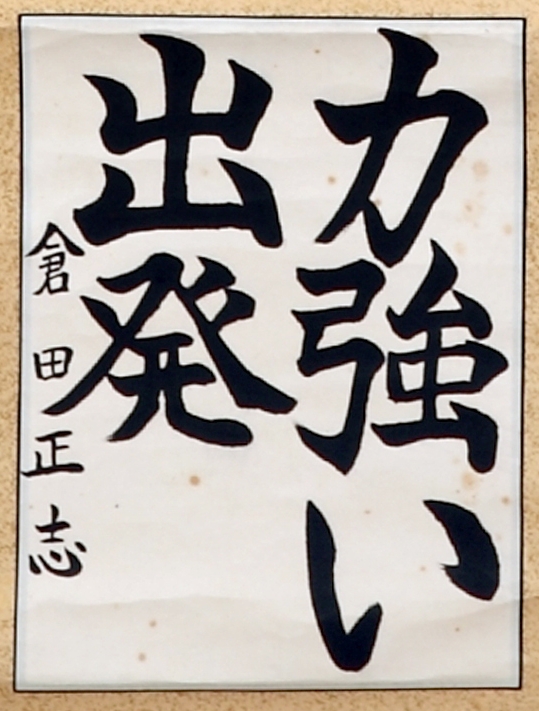 力強い
出発
倉田正志